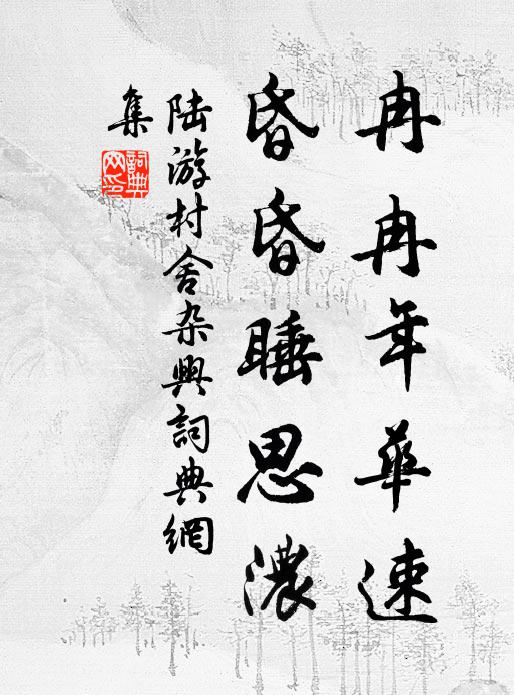 冉冉年華速
昏昏睡思濃
陆游村舍杂興詞典網
集
詞典網印